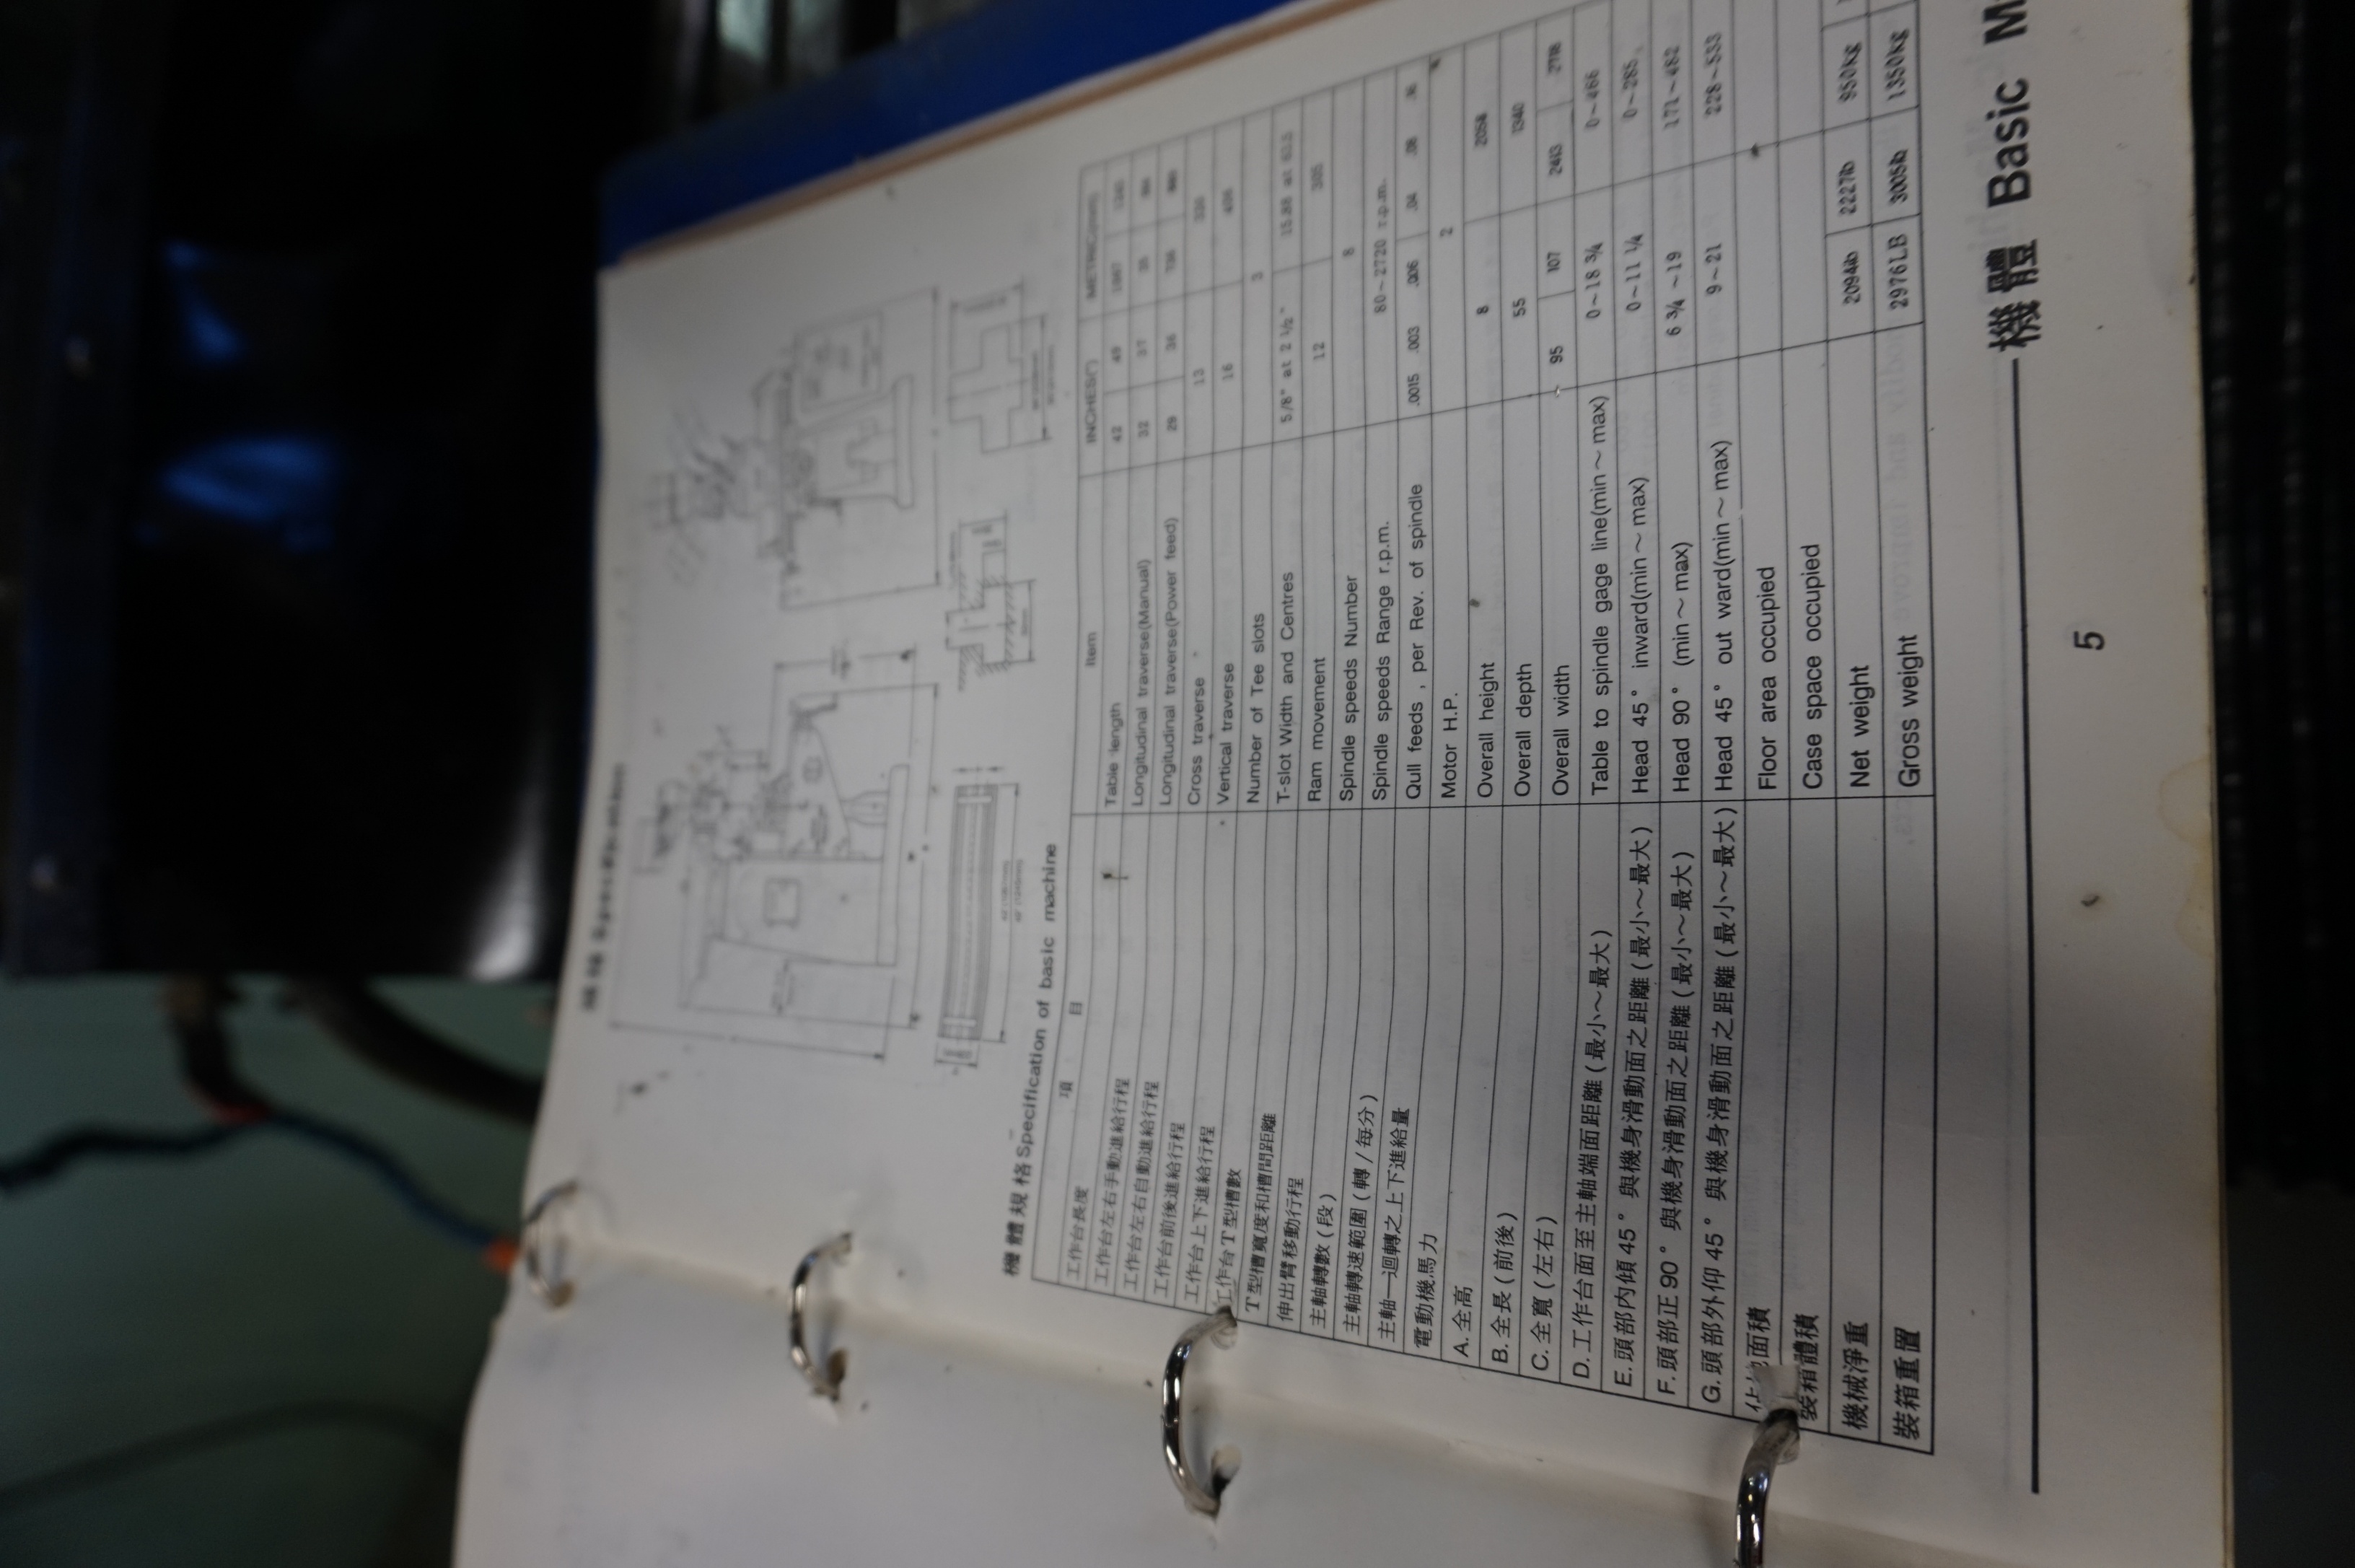 機體規格Specification of basic machine
項 目 Item INCHES(") METRIC(mm)
工作台長度 Table length 42 49
工作台左右手動進給行程 Longitudinal traverse(Manual) 32 37
工作台左右自動進給行程 Longitudinal traverse(Power feed) 29 36
工作台前後進給行程 Cross traverse 13
工作台上下進給行程 Vertical traverse 16
工作台T型槽數 Number of Tee slots 3
T型槽寬度和槽間距離 T-slot Width and Centres 5/8" at 2 1/2" 15.88 at 63.5
伸出臂移動行程 Ram movement 12 305
主軸轉數(段) Spindle speeds Number 8
主軸轉速範圍(轉/每分) Spindle speeds Range r.p.m. 80~2720 r.p.m.
主軸一迴轉之上下進給量 Qull feeds , per Rev. of spindle .0015 .003 .006 .04 .08
電動機馬力 Motor H.P. 2
A.全高 Overall height 8 2058
B.全長(前後) Overall depth 55 1340
C.全寬(左右) Overall width 95 107 2413 2718
D.工作台面至主軸端面距離(最小~最大) Table to spindle gage line(min~max) 0~18 3/4 0~466
E.頭部內傾45°與機身滑動面之距離(最小~最大) Head 45° inward(min~max) 0~11 1/4 0~285
F.頭部正90°與機身滑動面之距離(最小~最大) Head 90° (min~max) 6 3/4 ~19 171~482
G.頭部外仰45°與機身滑動面之距離(最小~最大) Head 45° out ward(min~max) 9~21 228~533
面積 Floor area occupied
裝箱體積 Case space occupied
機械淨重 Net weight 2094lb 2227lb 950kg
裝箱重置 Gross weight 2976LB 3005lb 1350kg
機體 Basic
5